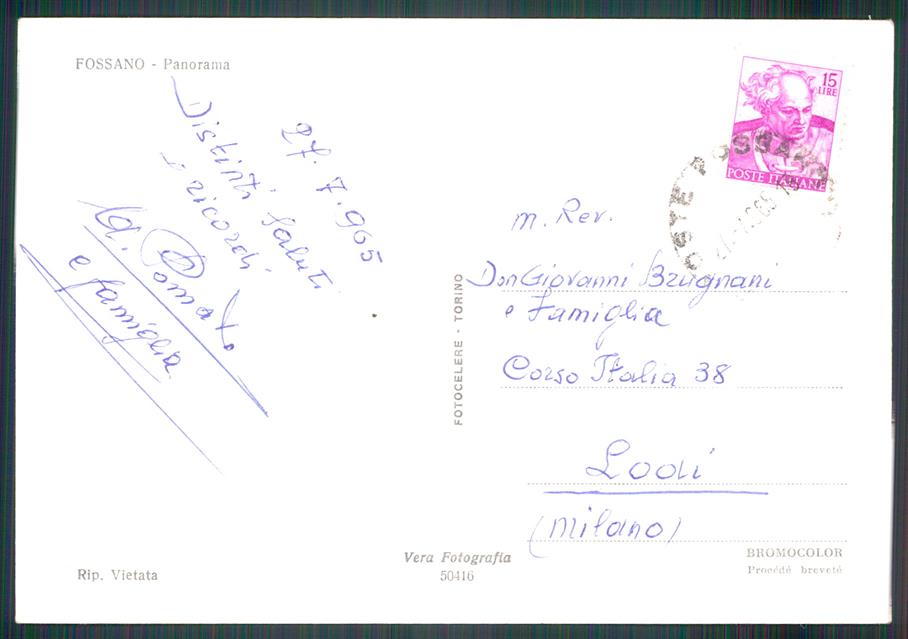 FOSSANO - Panorama
27. 7. 965
Distinti Saluti
e ricordi
e famiglia
15
LIRE
POSTE ITALIANE
POSTE FOSSANO
m. Rev.
Don Giovanni Brugnani
e Famiglia
Corso Italia 38
Lodi
(Milano)
FOTOCELERE - TORINO
Vera Fotografia
50416
Rip. Vietata
BROMOCOLOR
Procédé breveté